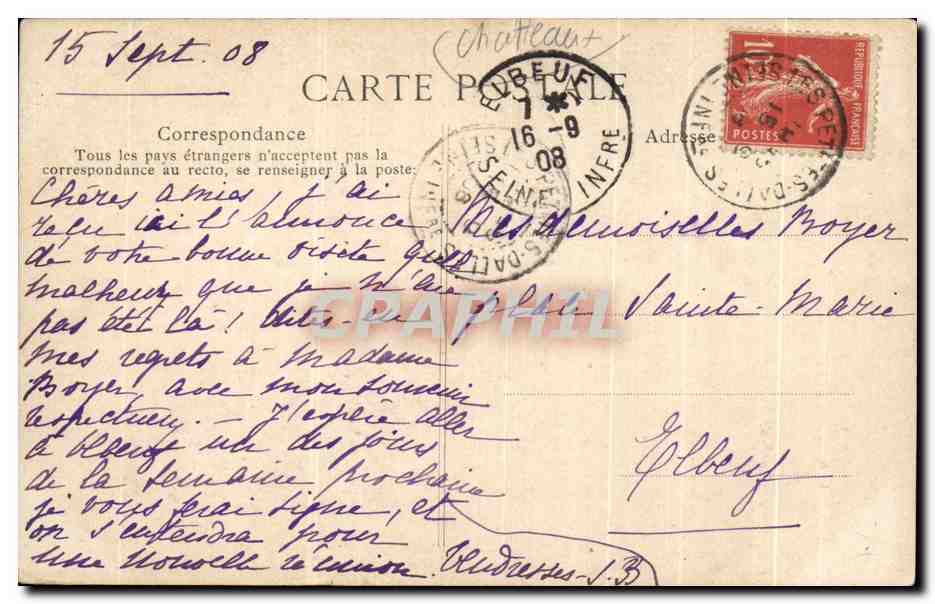 15 Sept. 08
Châteaux
CARTE POSTALE
Correspondance
Tous les pays étrangers n'acceptent pas la
correspondance au recto, se renseigner à la poste.
Adresse
ELBEUF
7 * 1
16 -9
08
SEINE INFRE
LES PETITES-DALLES
SEINE INFRE
RÉPUBLIQUE FRANÇAISE
POSTES
10
Chères amies, j'ai
reçu ici l'annonce
de votre bonne visite quel
malheur que je n'aie
pas été là ! dites-en
mes regrets à Madame
Boyer, avec mon souvenir
respectueux. — J'espère aller
à Elbeuf un des jours
de la semaine prochaine
je vous ferai signe, et
on s'entendra pour
une nouvelle réunion. Tendresses - J.B
Mesdemoiselles Boyer
place Sainte-Marie
Elbeuf
CPAPHIL